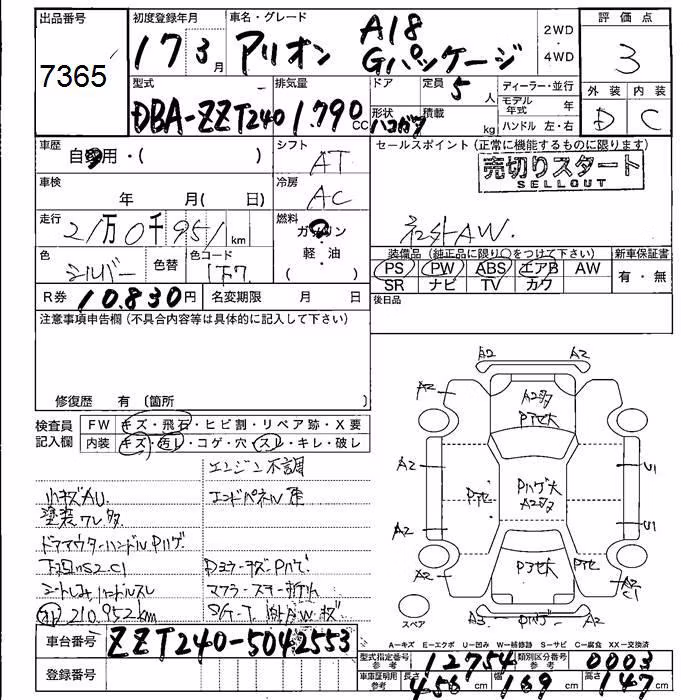 出品番号 初度登録年月 車名・グレード 2WD 評価点
7365 17 3月 アリオン A18 Gパッケージ ・4WD 3
型式 排気量 ドア 定員 ディーラー・並行 外装 内装
DBA-ZZT240 1.790CC 形状 積載 5人 モデル年式 年 D C
kg ハンドル 左・右
車歴 自家用・( ) シフト AT セールスポイント(正常に機能するものに限ります)
売切りスタート
SELLOUT
車検 年 月( 日) 冷房 AC
社外AW.
走行 21万0千951km 燃料 ガソリン
軽・油
( )
装備品(純正品に限り○をつけて下さい) 新車保証書
色 シルバー 色替 色コード 1F7
PS PW ABS エアB AW 有・無
SR ナビ TV カワ
R券 10,830円 名変期限 月 日 後日品
注意事項申告欄(不具合内容等は具体的に記入して下さい)
修復歴 有 (箇所
検査員記入欄 FW キズ・飛石・ヒビ割・リペア跡・X要
内装 キズ・汚レ・コゲ・穴・スレ・キレ・破レ
エンジン不調
小キズAU.
塗装ワレ多
ドアアウターハンドルPハゲ
210,952km
A2 A2
A2 A2多 A2
A2 Pハゲ大 U1
A2多
A2 U1
A2 A2
C1
スペア A3 Pハゲ A2
A=キズ E=エクボ U=凹み W=補修跡 S=サビ C=腐食 XX=交換済
車台番号 ZZT240-5042553
登録番号
型式指定番号 参考 12754 類別区分番号 参考 0003
車庫証明用 参考 長さ 456cm 幅 169cm 高さ 147cm